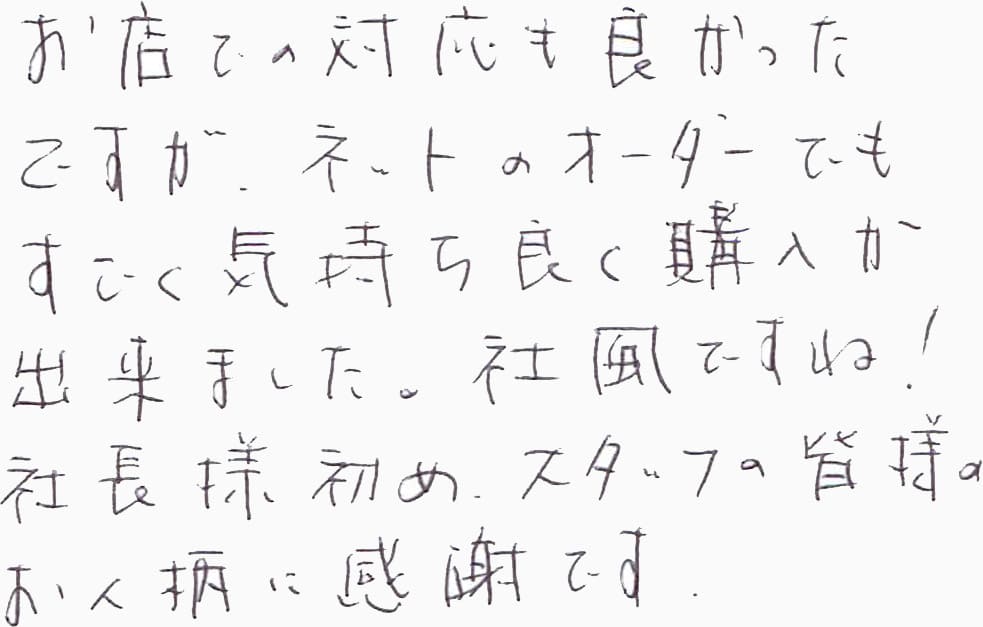 お店での対応も良かった
ですが、ネットのオーダーでも
すごく気持ち良く購入が
出来ました。社風ですね!
社長様初め、スタッフの皆様の
お人柄に感謝です.